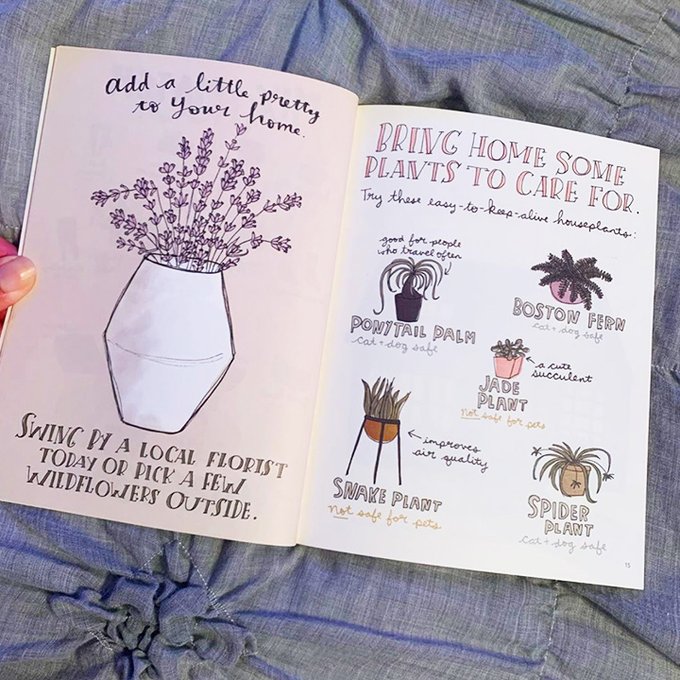 add a little pretty
to your home.
SWING BY A LOCAL FLORIST
TODAY OR PICK A FEW
WILDFLOWERS OUTSIDE.
BRING HOME SOME
PLANTS TO CARE FOR.
Try these easy-to-keep-alive houseplants:
good for people
who travel often
PONYTAIL PALM
cat + dog safe
BOSTON FERN
cat + dog safe
a cute
succulent
JADE
PLANT
Not safe for pets
improves
air quality
SNAKE PLANT
Not safe for pets
SPIDER
PLANT
cat + dog safe
15